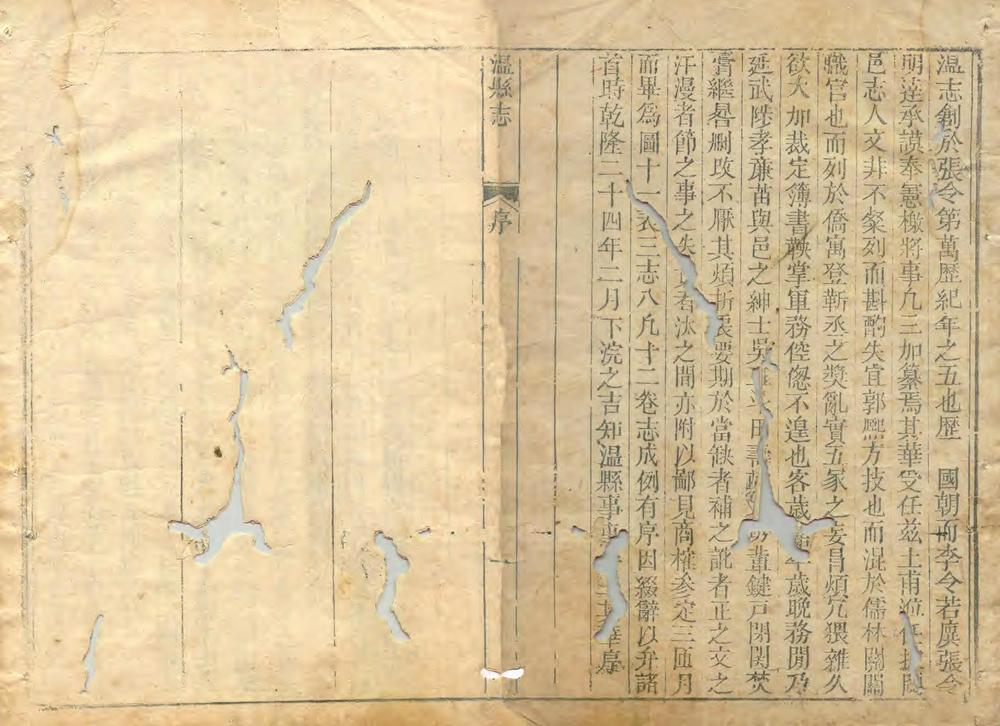 温志創於張令第萬歷紀年之五也歷　國朝而李令若廙張令
明達承謨奉憲檄將事凡三加纂焉其華受任茲土甫涖任披閱
邑志人文非不粲列而斟酌失宜郭熈方技也而混於儒林關關
職官也而列於僑寓登蘄丞之獎亂實五家之妄冒煩冗猥雜久
欲大加裁定簿書鞅掌軍務倥偬不遑也客歲 年歲晚務閒乃
延武陟孝廉苗與邑之紳士吳 田 輩鍵戸閉関焚
膏繼晷刪改不厭其煩折衷要期於當缺者補之訛者正之文之
汗漫者節之事之失 者汰之間亦附以鄙見商榷參定三匝月
而畢爲圖十一表三志八凡十二卷志成例有序因綴辭以弁諸
首時乾隆二十四年二月下浣之吉知温縣事 華序
温縣志
序